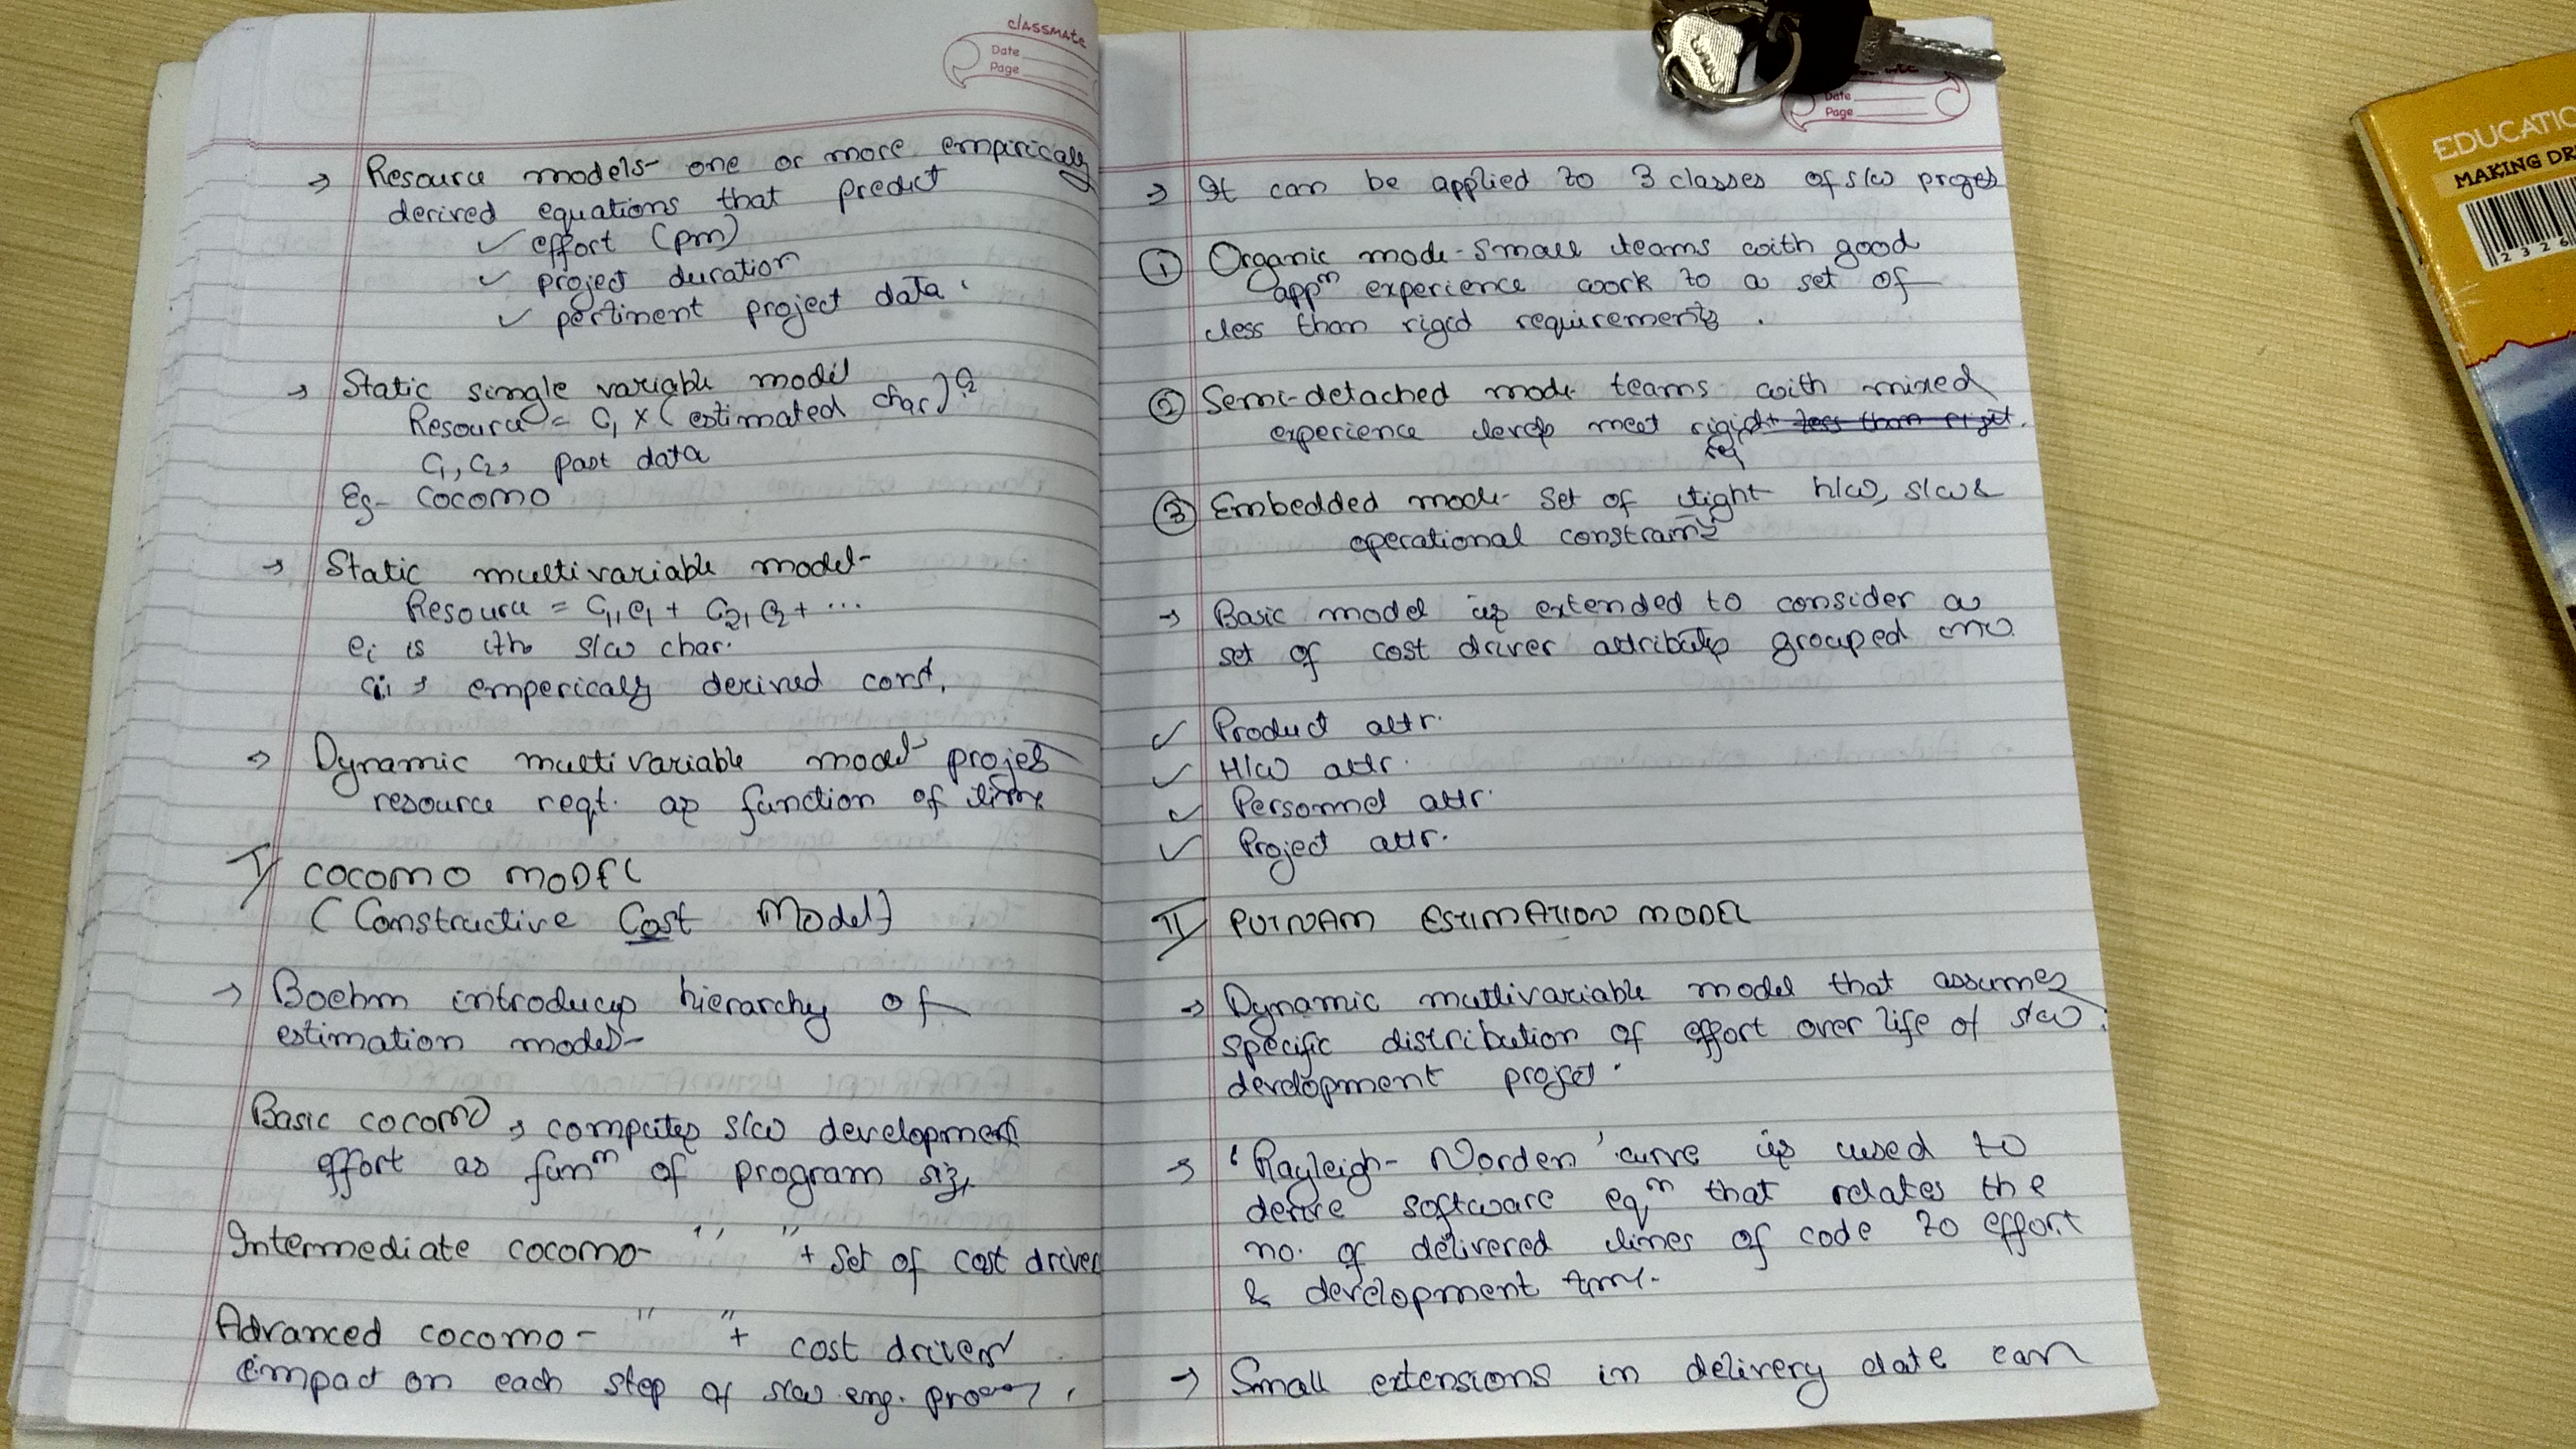 classmate
Date
Page
→ Resource models- one or more empirically
derived equations that predict
✓ effort (pm)
✓ project duration
✓ pertinent project data.
→ Static single variable model
Resource = C1 x (estimated char)C2
C1, C2, past data
Eg- COCOMO
→ Static multivariable model-
Resource = C11e1 + C21e2 + ...
ei is ith s/w char.
empericaly derived const.
→ Dynamic multivariable model projets
resource reqt. as function of time
I/ COCOMO MODEL
(Constructive Cost Model)
→ Boehm introduces hierarchy of
estimation models-
Basic COCOMO → computes s/w development
effort as funⁿ of program size
Intermediate COCOMO- " " + set of cost driver
Advanced COCOMO- " " + cost drivers
impact on each step of s/w eng. process.
Date
Page
→ It can be applied to 3 classes of s/w projets
① Organic mode- small teams with good
appⁿ experience work to a set of
less than rigid requirements.
② Semi-detached mode- teams with mixed
experience meet rigid less than rigid.
req
③ Embedded mode- set of tight h/w, s/w &
operational constraints
→ Basic model is extended to consider a
set of cost driver attributes grouped into
✓ Product attr.
✓ H/W attr.
✓ Personnel attr.
✓ Project attr.
II/ PUTNAM ESTIMATION MODEL
→ Dynamic multivariable model that assumes
specific distribution of effort over life of s/w
development project.
→ 'Rayleigh- Norden' curve is used to
derive software eqⁿ that relates the
no. of delivered lines of code to effort
& development time.
→ Small extensions in delivery date can
EDUCATIO
MAKING DR
2 3 2 6